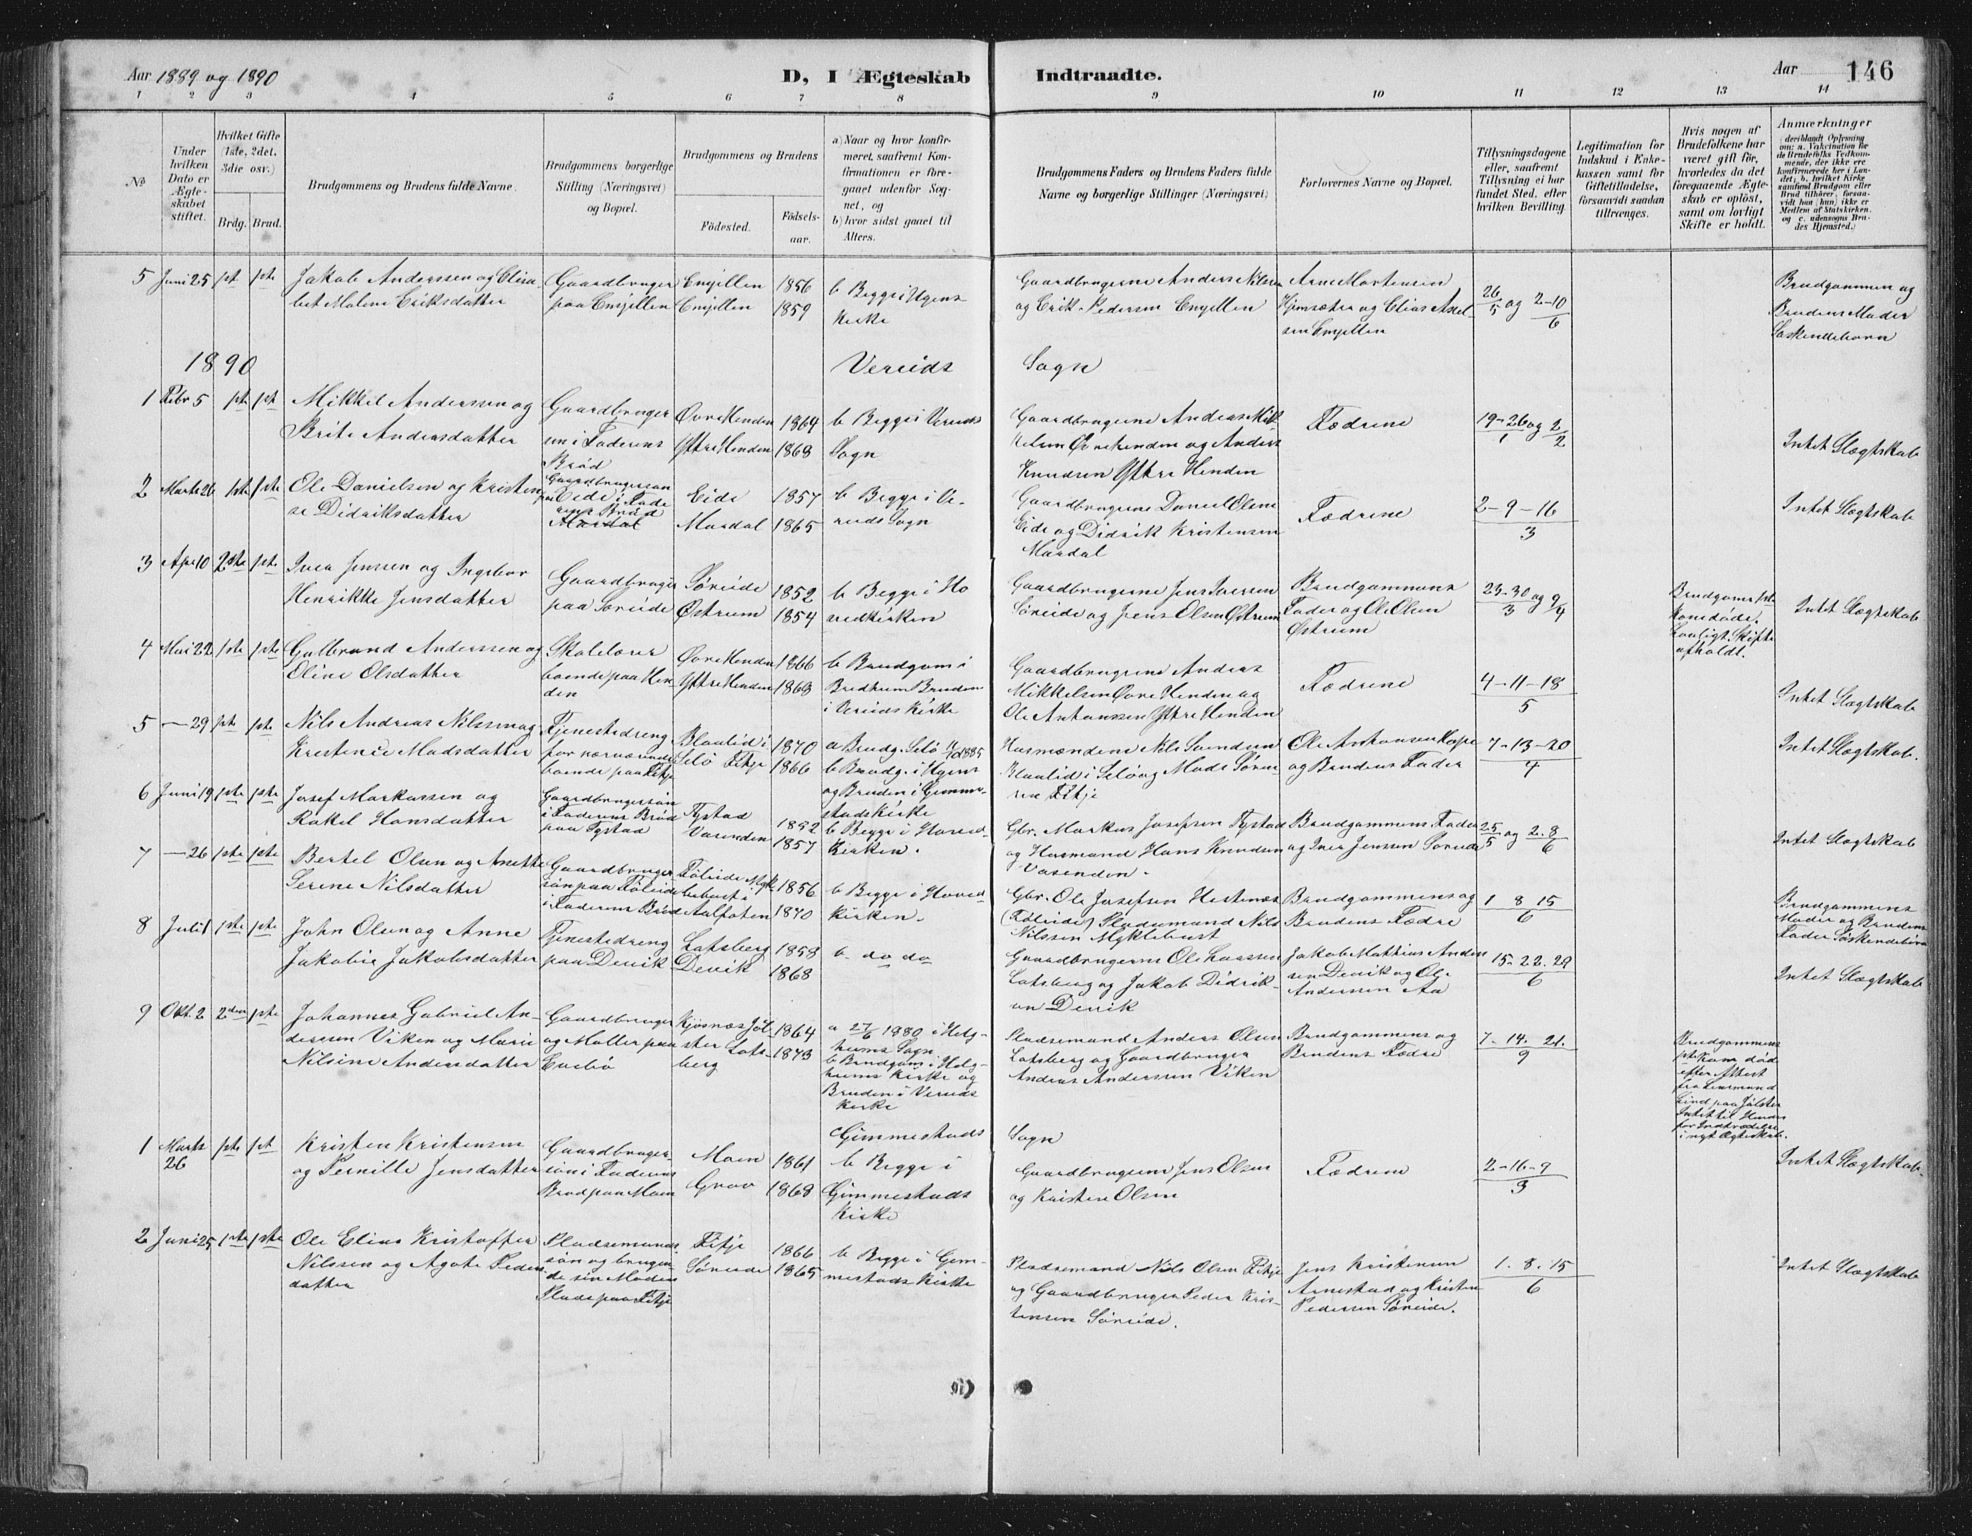 Aar 1889 og 1890
D, I Ægteskab
Indtraadte.
Aar 146
1 2 3 4 5 6 7 8 9 10 11 12 13 14
No
Under hvilken Dato er Ægteskabet stiftet.
Hvilket Gifte (1ste, 2det, 3die osv.)
Brdg. Brud.
Brudgommens og Brudens fulde Navne.
Brudgommens borgerlige Stilling (Næringsvei) og Bopæl.
Brudgommens og Brudens
Fødested.
Fødselsaar.
a) Naar og hvor konfirmeret, saafremt Konfirmationen er foregaaet udenfor Sognet, og
b) hvor sidst gaaet til Alters.
Brudgommens Faders og Brudens Faders fulde Navne og borgerlige Stillinger (Næringsvei)
Forlovernes Navne og Bopæl.
Tillysningsdagene eller, saafremt Tillysning ei har fundet Sted, efter hvilken Bevilling.
Legitimation for Indskud i Enkekassen samt for Giftetilladelse, forsaavidt saadan tiltrænges.
Hvis nogen af Brudefolkene har været gift før, hvorledes da det foregaaende Ægteskab er opløst, samt om lovligt Skifte er holdt.
Anmærkninger
5 Juni 25 1st. 1ste
Jakob Anderssen og Elisabet Malene Eriksdatter
Gaardbruger paa Emjellen
Emjellen 1856
Emjellen 1859
b Begge i Hyens Kirke
Gaardbrugerne Anders Nilsen og Erik Pedersen Emjellen
Arne Mortensen Hjemsæter og Elias Axelsen Emjellen
26/5 og 2-10/6
Brudgommen og Brudens Moder Søskendebørn
1890
Vereids Sogn
1 Febr 5 1ste 1ste
Mikkel Anderssen og Brite Andersdatter
Gaardbruger i Faderens Brød
Øvre Henden 1864
Yttre Henden 1863
b Begge i Vereids Sogn
Gaardbrugerne Anders Mikkelsen Øvre Henden og Anders Knudsen Yttre Henden
Fædrene
19-26/1 og 2/2
Intet Slægtskab
2 Marts 26 1ste 1ste
Ole Danielsen og Kristense Didriksdatter
Gaardbrugersøn paa Eide i Faderens Brød
Eide 1857
Mardal 1865
b Begge i Vereids Sogn
Gaardbrugerne Daniel Olsen Eide og Didrik Kristensen Mardal
Fædrene
2-9-16/3
Intet Slægtskab
3 Apr 10 2den 1ste
Iver Jenssen og Ingebor Henrikke Jensdatter
Gaardbruger paa Søreide
Søreide 1852
Østrum 1854
b Begge i Hovedkirken
Gaardbrugerne Jens Iversen Søreide og Jens Olsen Østrum
Brudgommens Fader og Ole Olsen Østrum
23-30/3 og 9/4
Brudgoms 1ste Kone døde. Lovligt Skifte afholdt.
Intet Slægtskab
4 Mai 22 1ste 1ste
Gulbrand Anderssen og Oline Olsdatter
Skolelærer boende paa Henden
Øvre Henden 1866
Yttre Henden 1863
b Brudgom i Bredheim Bruden i Vereids Kirke
Gaardbrugerne Anders Mikkelsen Øvre Henden og Ole Antonssen Yttre Henden
Fædrene
4-11-18/5
Intet Slægtskab
5 — 29 1ste 1ste
Nils Andreas Nilssen og Kristence Madsdatter
Tjenestedreng for nærværende boende paa Fitje
Blaalid i Selø 1870
Fitje 1866
a Brudg. Selø 1885
b Brudg. i Hyens og Bruden i Gimmestads Kirke
Husmændene Nils Svendsen Blaalid i Selø og Mads Sørensen Fitje
Ole Antonsen Hope og Brudens Fader
7-13-20/4
Intet Slægtskab.
6 Juni 19 1ste 1ste
Josef Markussen og Rakel Hansdatter
Gaardbrugersøn i Faderens Brød paa Tystad
Tystad 1852
Vasenden 1857
b Begge i Hovedkirken.
Gbr. Markus Josefsen Tystad og Husmand Hans Knudsen Vasenden.
Brudgommens Fader og Iver Jensen Søreide
25/5 og 2.8/6
Intet Slægtskab
7 — 26 1ste 1ste
Bertel Olsen og Anette Serene Nilsdatter
Gaardbrugersøn paa Føleide i Faderens Brød
Føleide 1856
Myklebust i Aalfoten 1870
b Begge i Hovedkirken.
Gbr. Ole Josefsen Hestenæs (Føleide) Pladsemand Nils Nilssen Myklebust
Brudgommens og Brudens Fædre
1 8 15/6
Brudgommens Moder og Brudens Fader Søskendebørn
8 Juli 1 1ste 1ste
John Olsen og Anne Jakobie Jakobsdatter
Tjenestedreng paa Devik
Lotsberg 1858
Devik 1868
b do do
Gaardbrugerne Ole Larssen Lotsberg og Jakob Didriksen Devik
Jakob Mathias Andersen Devik og Ole Anderssen Aa
15-22-29/6
Intet Slægtskab
9 Okt. 2 2den 1ste
Johannes Gabriel Anderssen Viken og Marie Nilsine Andersdatter
Gaardbruger og Møller paa Evebø
Kjøsnæs Jølster 1864
Lotsberg 1873
a 27/6 1880 i Helghems Sogn
b Brudgom i Helghems Kirke og Bruden i Vereids Kirke
Pladsemand Anders Olsen Lotsberg og Gaardbruger Andreas Anderssen Viken
Brudgommens og Brudens Fædre
7-14-21/9
Brudgommens 1ste Kone død efter Attest fra Lensmand Lind paa Jølster Intet til Hinder for Indtrædelse i nyt Ægteskab.
Gimmestads Sogn
1 Marts 26 1ste 1st.
Kristen Kristensen og Pernille Jensdatter
Gaardbrugersøn i Faderens Brød paa Moen
Moen 1861
Grov 1868
b Begge i Gimmestads Kirke
Gaardbrugerne Jens Olsen og Kristen Olsen
Fædrene
2-16-9/3
Intet Slægtskab.
2 Juni 25 1ste 1ste
Ole Elias Kristoffer Nilssen og Agate Pedersdatter
Pladsemandssøn og brugende sin Moders Plads paa Fitje
Fitje 1866
Søreide 1865
b Begge i Gimmestads Kirke
Pladsemand Nils Olsen Fitje og Gaardbruger Peder Kristensen Søreide.
Jens Kristensen Arnestad og Kristen Pedersen Søreide.
1.8.15/6
Intet Slægtskab